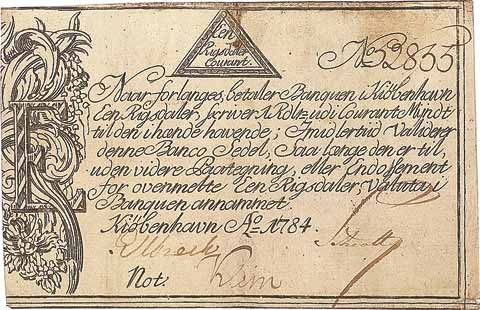 Een
Rigsdaler
Courant.
No 52855
Naar forlanges, betaler Banquen i Kiöbenhavn
Een Rigsdaler, scriver 1 Rdlr., udi Courant Myndt
til den i hande havende; Imidlertid Validerer
denne Banco Sedel, Saa lange den er til,
uden videre Paategning, eller Endossement
for ovenmelte Een Rigsdaler, Valuta i
Banquen annammet.
Kiöbenhavn Ao. 1784.
Not.